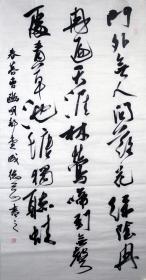 門外無人問落花綠陰冉
冉遍天涯林鶯啼到無聲
處青草池塘獨聽蛙
春暮曹豳